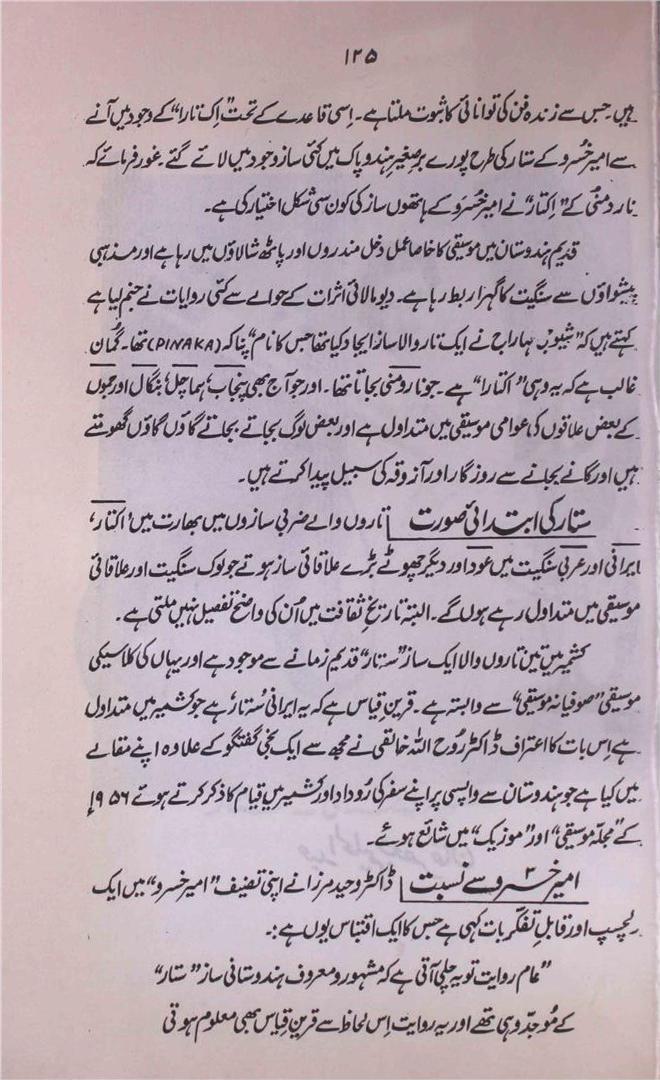 ۱۲۵
ہیں۔ جس سے زندہ فن کی توانائی کا ثبوت ملتا ہے۔ اِسی قاعدے کے تحت "اِک تارا" کے وجود میں آنے
سے امیر خُسرو کے ستار کی طرح پورے برِ صغیر ہند و پاک میں کئی ساز وجود میں لائے گئے۔ غور فرمائے کہ
نارد مُنی کے "اِکتار" نے امیر خُسرَو کے ہاتھوں ساز کی کون سی شکل اختیار کی ہے۔
قدیم ہندوستان میں موسیقی کا خاصا عمل دخل مندروں اور پاٹھ شالاؤں میں رہا ہے اور مذہبی
پیشواؤں سے سنگیت کا گہرا ربط رہا ہے۔ دیومالائی اثرات کے حوالے سے کئی روایات نے جنم لیا ہے
کہتے ہیں کہ "شیو جی مہاراج نے ایک تار والا ساز ایجاد کیا تھا جس کا نام "پناکہ (PINAKA) تھا۔ گُمان
غالب ہے کہ یہ وہی "اکتارا" ہے۔ جو نارومنی بجاتا تھا۔ اور جو آج بھی پنجاب، ہماچل، بنگال اور جموں
کے بعض علاقوں کی عوامی موسیقی میں متداول ہے اور بعض لوگ بجاتے بجاتے گاؤں گاؤں گھومتے
ہیں اور گانے بجانے سے روزگار اور آزوقہ کی سبیل پیدا کرتے ہیں۔
ستار کی ابتدائی صورت تاروں والے ضربی سازوں میں بھارت میں 'اکتار'،
ایرانی اور عربی سنگیت میں عود اور دیگر چھوٹے بڑے علاقائی ساز ہوتے جو لوک سنگیت اور علاقائی
موسیقی میں متداول رہے ہوں گے۔ البتہ تاریخِ ثقافت میں اُن کی واضح تفصیل نہیں ملتی ہے۔
کشمیر میں تین تاروں والا ایک ساز "ستار" قدیم زمانے سے موجود ہے اور یہاں کی کلاسیکی
موسیقی "صوفیانہ موسیقی" سے وابستہ ہے۔ قرینِ قیاس ہے کہ یہ ایرانی سُتار ہے جو کشمیر میں متداول
ہے اِس بات کا اعتراف ڈاکٹر رُوح اللہ خالقی نے مجھ سے ایک نجی گفتگو کے علاوہ اپنے مقالے
میں کیا ہے جو ہندوستان سے واپسی پر اپنے سفر کی رُوداد اور کشمیر میں قیام کا ذکر کرتے ہوئے ۱۹۵۶ء
کے "مجلّہ موسیقی" اور "موزیک" میں شائع ہوئے۔
امیر خسرو سے نسبت ڈاکٹر وحید مرزا نے اپنی تصنیف "امیر خسرو" میں ایک
دلچسپ اور قابلِ تفکّر بات کہی ہے جس کا ایک اقتباس یوں ہے:۔
"عام روایت تو یہ چلی آتی ہے کہ مشہور و معروف ہندوستانی ساز "ستار"
کے مُوجد وہی تھے اور یہ روایت اِس لحاظ سے قرینِ قیاس بھی معلوم ہوتی